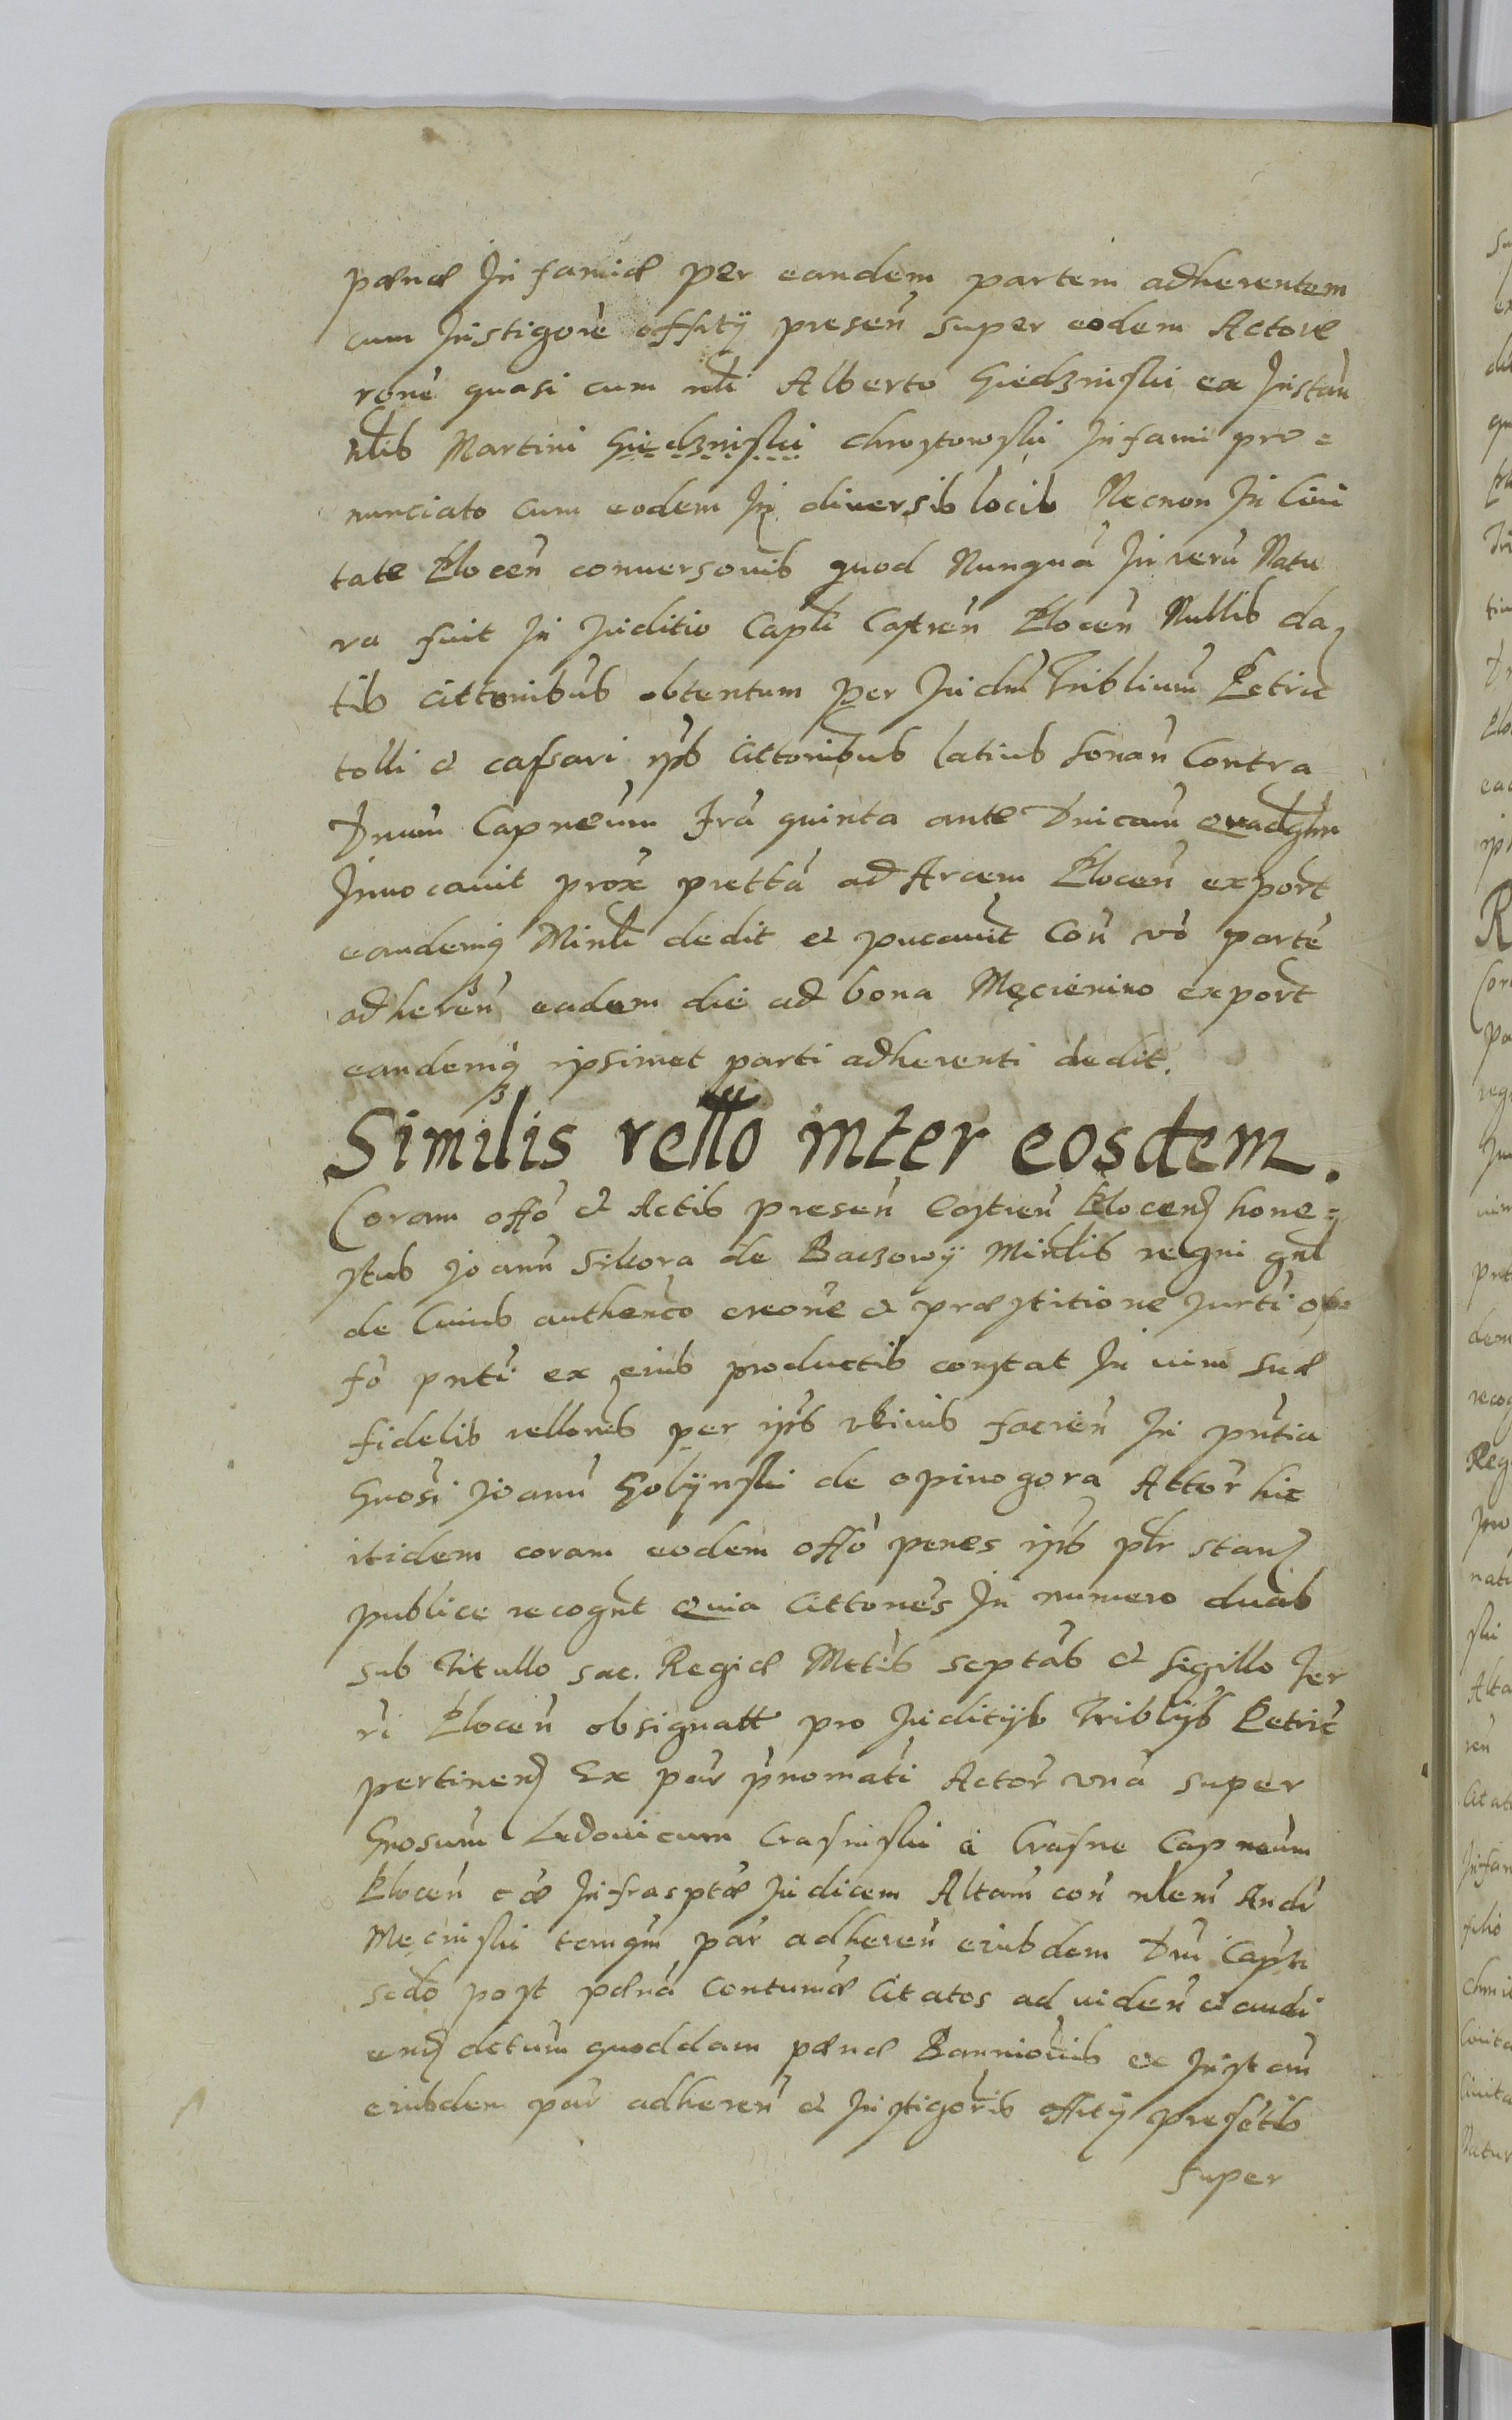 pænæ Infamiæ per eandem partem adherentem
cum Instigore offity presen super eodem Actore
rone quasi cum nli Alberto Giedzniski ex Instan
nlis Martini Giedzniski chrostowski Infami pro=
nunciato cum eodem In diuersis locis Necnon In Ciui
tate Plocen conuersonis quod Nunqua In reru Natu
ra fuit In Juditio Capli Castren Plocen Nullis da
tis cittonibus obtentum per Judm Triblium Petric
tolli et cassari ips cittonibus latius sonan Contra
Dnum Capneum Fra quinta ante Dnicam Quadgm
Inuocauit prox prettá ad Arcem Plocen export
eandemq Minli dedit et pucauit Con vo parte
adheren eadem die ad bona Męcienino export
eandemq ipsimet parti adherenti dedit.
Similis rello inter eosdem.
Coram offo et Actis presen Castren Plocen hone=
stus Joann Sikora de Baczowy Minlis regni gnl
de Cuius authenco creone et præstitione Jurti off
fo pnti ex eius productis constat In uim suæ
fidelis rellonis per ips vkiuis facien In pntia
Gnosi Joann Golynski de opinogora Attor hic
itidem coram eodem offo penes ips plr stan
publice recognt Quia Cittones In numero duas
sub Titullo sac. Regiæ Mttis scptas et sigillo Ter
ri Plocen obsignatt pro Juditijs Triblijs Petric
pertinen Ex par pnomati Actor vna super
Gnosum Ludouicum Crasniski a Crasne Capneum
Plocen cæ Infrasptæ Judicem Altam con nlem Andr
Mecniski tanqm par adheren eiusdem Dni Capli
scdo post pæna Contumæ Citatos ad uiden et audi
en dctum quoddam pænæ Bannionis ex Instan
eiusdem par adheren et Instigoris offity presetis
super